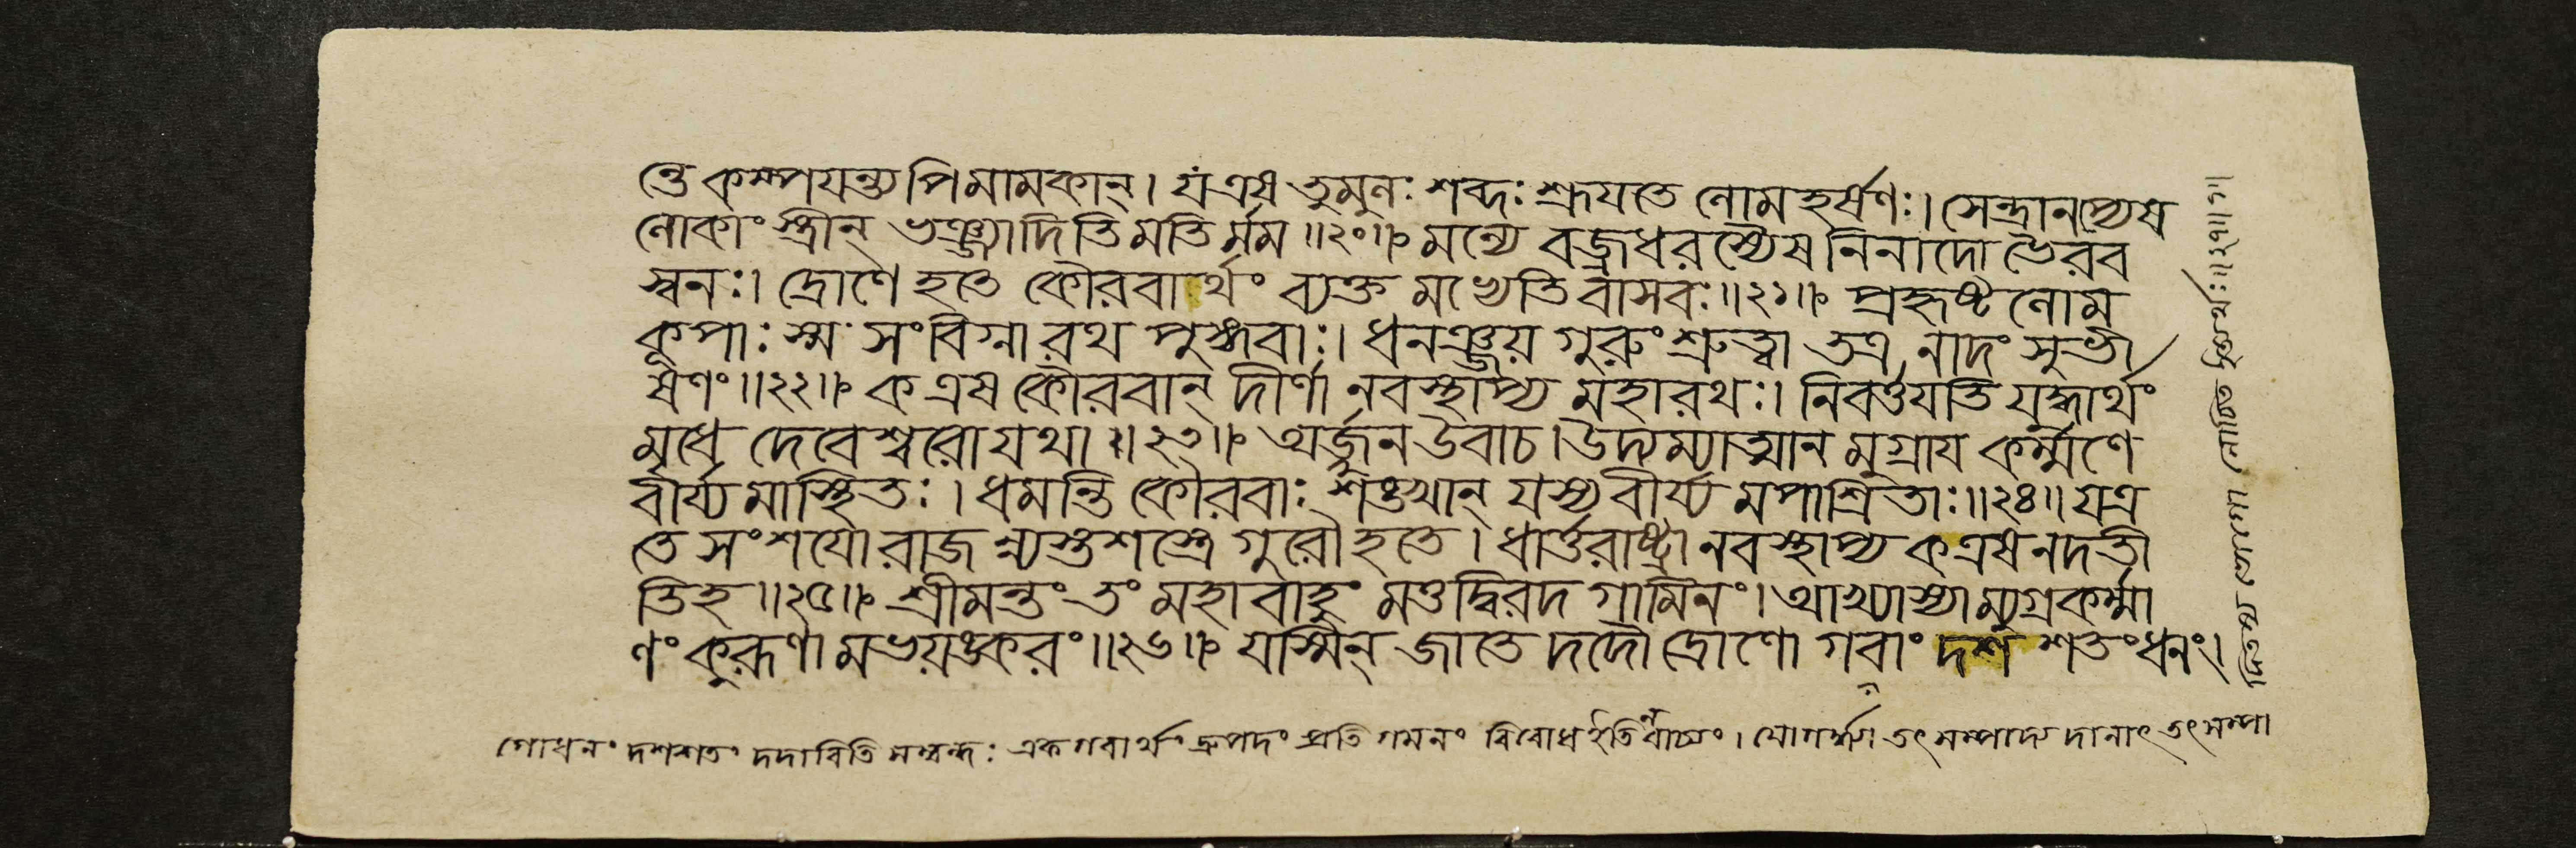 ন্তে কম্পযন্ত্যপি মামকান্। য এষ তুমুলঃ শব্দঃ শ্রূযতে লোমহর্ষণঃ। সেন্দ্রানপ্যেষ
লোকাংস্ত্রীন্ ভঞ্জ্যাদিতি মতির্ম্মম॥২০॥ মন্যে বজ্রধরস্যৈষ নিনাদো ভৈরব
স্বনঃ। দ্রোণে হতে কৌরবার্থং ব্যক্তমভ্যেতি বাসবঃ॥২১॥ প্রহৃষ্টলোম
কূপাঃ স্ম সংবিগ্না রথপুঙ্গবাঃ। ধনঞ্জয় গুরুং শ্রুত্বা তত্র নাদং সুভী
ষণং॥২২॥ ক এষ কৌরবান্ দীর্ণানবস্থাপ্য মহারথঃ। নিবর্ত্তযতি যুদ্ধার্থং
মৃধে দেবেশ্বরো যথা॥২৩॥ অর্জ্জুন উবাচ। উদ্যম্যাত্মানমুগ্রায কর্ম্মণে
বীর্য্যমাস্থিতঃ। ধমন্তি কৌরবাঃ শঙ্খান্ যস্য বীর্য্যমপাশ্রিতাঃ॥২৪॥ যত্র
তে সংশযো রাজন্ন্যস্তশস্ত্রে গুরৌ হতে। ধার্ত্তরাষ্ট্রানবস্থাপ্য ক এষ নদতী
তিহ॥২৫॥ শ্রীমন্তং তং মহাবাহুং মত্তদ্বিরদগামিনং। আখ্যাস্যাম্যুগ্রকর্ম্মা
ণং কুরূণামভয়ঙ্করং॥২৬॥ যস্মিন্ জাতে দদৌ দ্রোণো গবাং দশশতং ধনং।
গোধনং দশশতং দদাবিতি সম্বন্ধঃ একগবার্থং দ্রুপদং প্রতি গমনং বিরোধ ইতি ন বাচ্যং। তৎসম্পাদ্য দানাৎ তৎসম্পা
দিতস্য ইত্যর্থঃ॥২৭॥